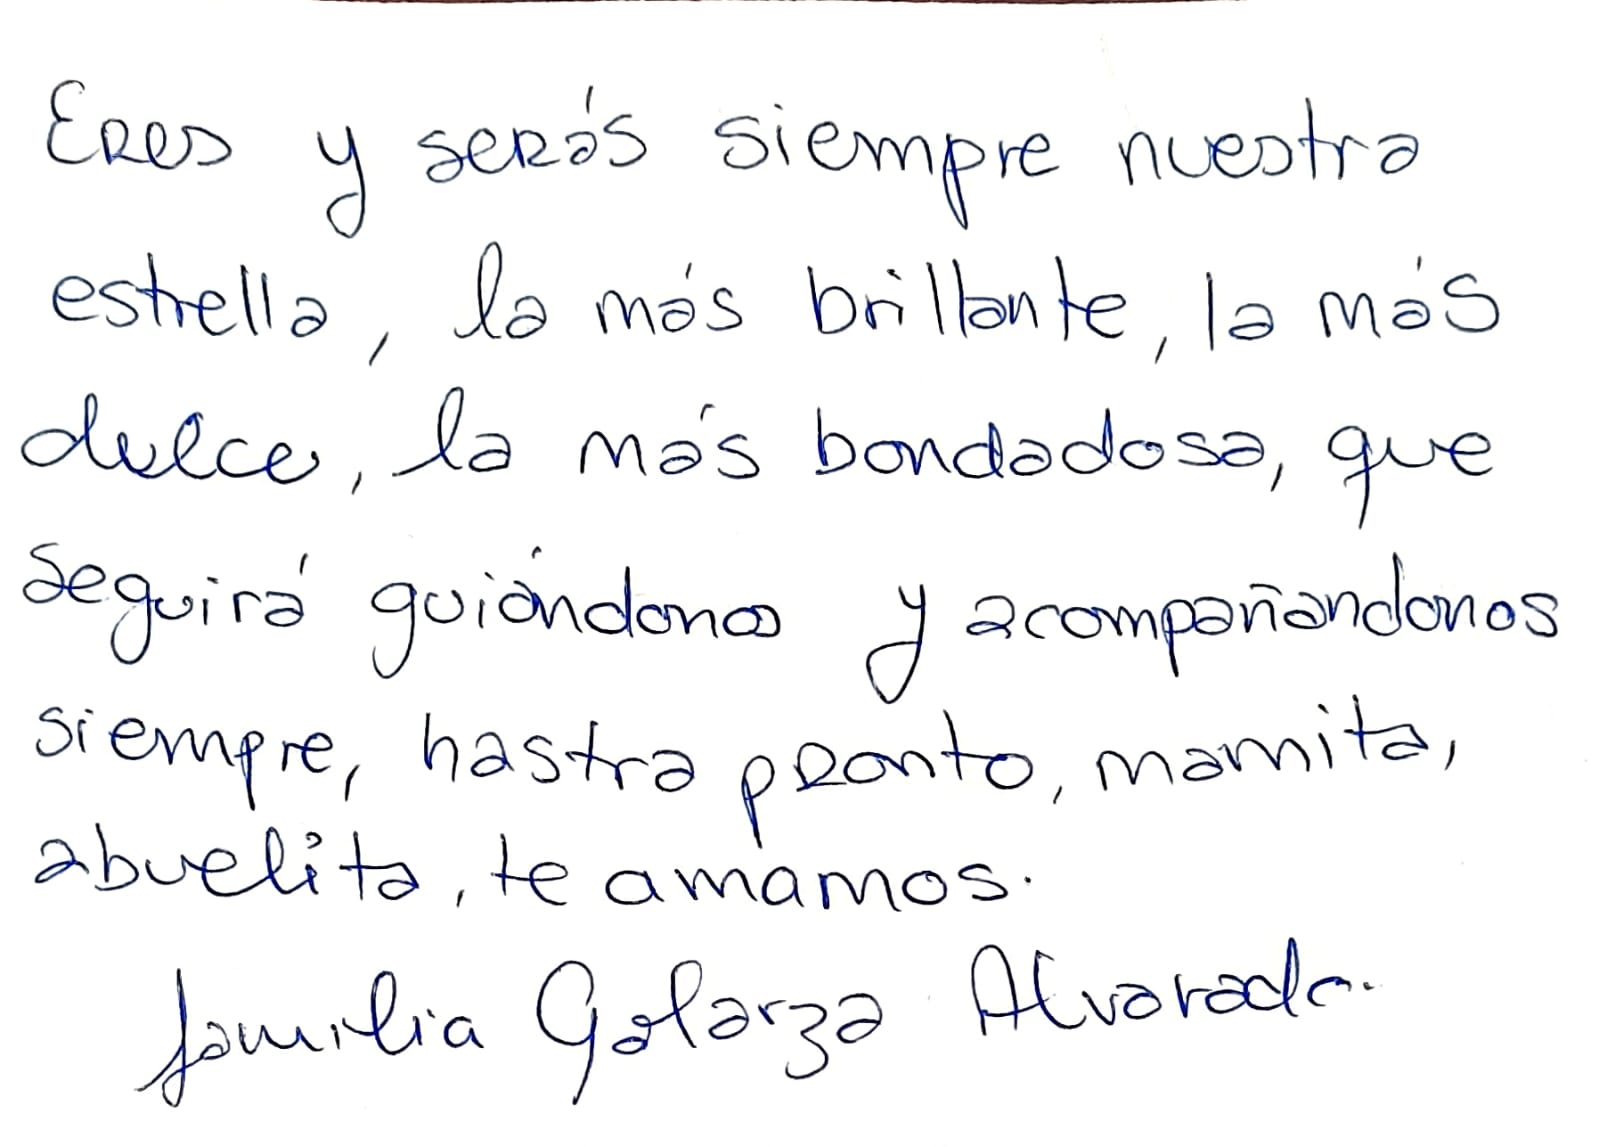 Eres y serás siempre nuestra
estrella, la más brillante, la más
dulce, la más bondadosa, que
seguirá guiándonos y acompañandonos
siempre, hastra pronto, mamita,
abuelita, te amamos.
familia Galarza Alvarado.